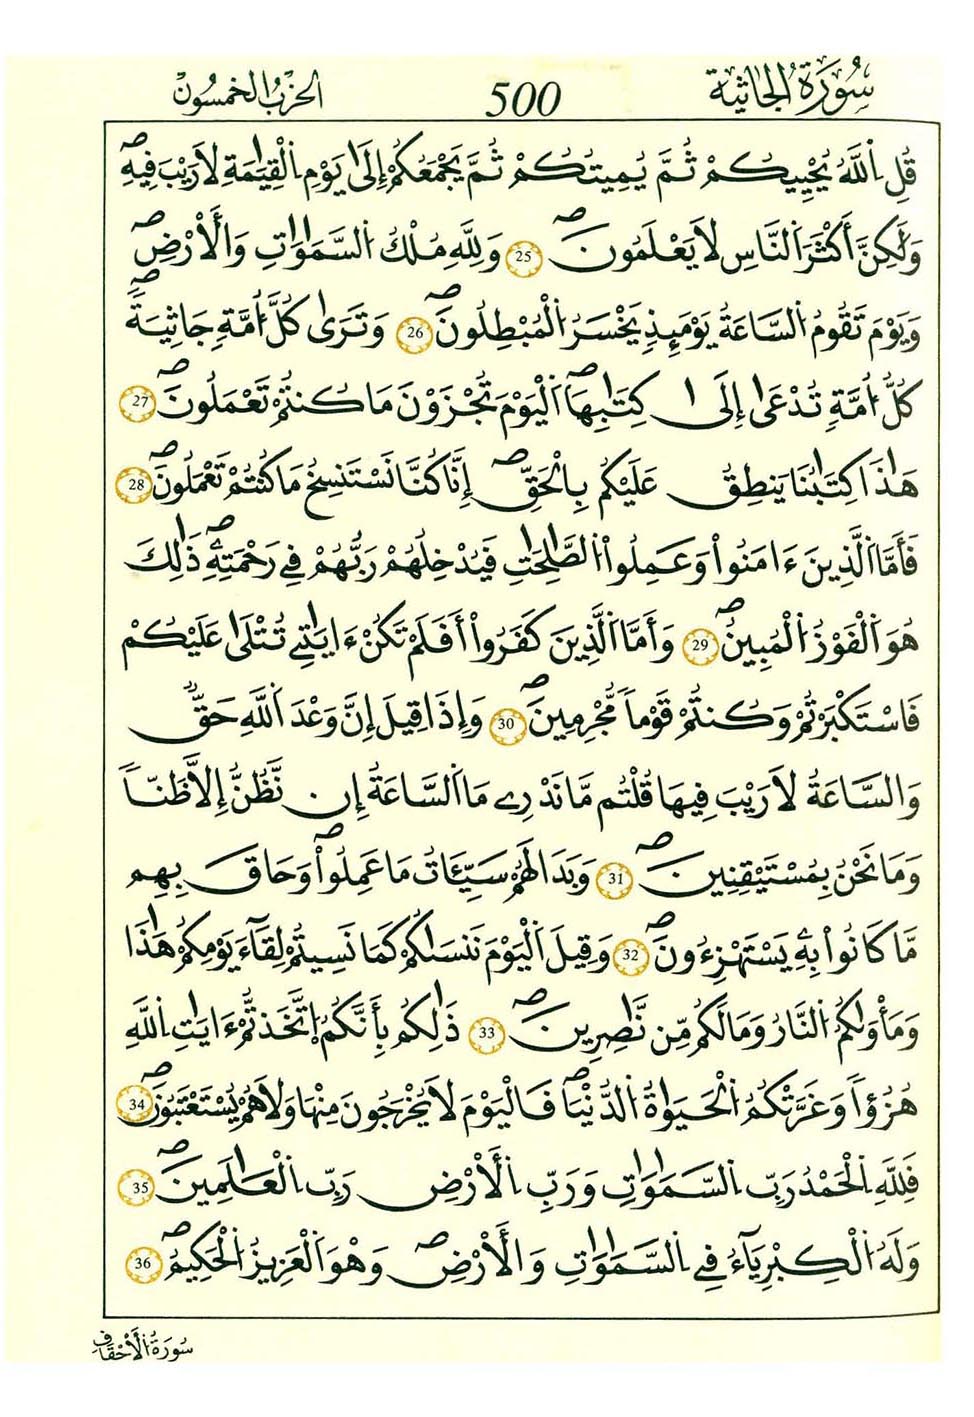 سُورَةُ الْجَاثِيَة 500 الحِزْبُ الخَمْسُون
قُلِ اِ۬للَّهُ يُحْيِيكُمْ ثُمَّ يُمِيتُكُمْ ثُمَّ يَجْمَعُكُمْ إِلَىٰ يَوْمِ اِ۬لْقِيَٰمَةِ لَا رَيْبَ فِيهِۖ
وَلَٰكِنَّ أَكْثَرَ اَ۬لنَّاسِ لَا يَعْلَمُونَۖ 25 وَلِلَّهِ مُلْكُ اُ۬لسَّمَٰوَٰتِ وَالْأَرْضِۖ
وَيَوْمَ تَقُومُ اُ۬لسَّاعَةُ يَوْمَئِذٍ يَخْسَرُ اُ۬لْمُبْطِلُونَۖ 26 وَتَرَىٰ كُلَّ أُمَّةٍ جَاثِيَةًۖ
كُلُّ أُمَّةٍ تُدْعَىٰ إِلَىٰ كِتَٰبِهَاۖ اَ۬لْيَوْمَ تُجْزَوْنَ مَا كُنتُمْ تَعْمَلُونَۖ 27
هَٰذَا كِتَٰبُنَا يَنطِقُ عَلَيْكُم بِالْحَقِّۖ إِنَّا كُنَّا نَسْتَنسِخُ مَا كُنتُمْ تَعْمَلُونَۖ 28
فَأَمَّا اَ۬لَّذِينَ ءَامَنُواْ وَعَمِلُواْ اُ۬لصَّٰلِحَٰتِ فَيُدْخِلُهُمْ رَبُّهُمْ فِے رَحْمَتِهِۦۖ ذَٰلِكَ
هُوَ اَ۬لْفَوْزُ اُ۬لْمُبِينُۖ 29 وَأَمَّا اَ۬لَّذِينَ كَفَرُواْ أَفَلَمْ تَكُنْ ءَايَٰتِے تُتْلَىٰ عَلَيْكُمْ
فَاسْتَكْبَرْتُمْ وَكُنتُمْ قَوْماً مُّجْرِمِينَۖ 30 وَإِذَا قِيلَ إِنَّ وَعْدَ اَ۬للَّهِ حَقٌّ
وَالسَّاعَةُ لَا رَيْبَ فِيهَا قُلْتُم مَّا نَدْرِے مَا اَ۬لسَّاعَةُ إِن نَّظُنُّ إِلَّا ظَنّاً
وَمَا نَحْنُ بِمُسْتَيْقِنِينَۖ 31 وَبَدَا لَهُمْ سَيِّـَٔاتُ مَا عَمِلُواْۖ وَحَاقَ بِهِم
مَّا كَانُواْ بِهِۦ يَسْتَهْزِءُونَۖ 32 وَقِيلَ اَ۬لْيَوْمَ نَنسَىٰكُمْ كَمَا نَسِيتُمْ لِقَآءَ يَوْمِكُمْ هَٰذَا
وَمَأْوَىٰكُمُ اُ۬لنَّارُ وَمَا لَكُم مِّن نَّٰصِرِينَۖ 33 ذَٰلِكُم بِأَنَّكُمُ اُ۪تَّخَذتُّمْ ءَايَٰتِ اِ۬للَّهِ
هُزُؤاً وَغَرَّتْكُمُ اُ۬لْحَيَوٰةُ اُ۬لدُّنْيَاۖ فَالْيَوْمَ لَا يُخْرَجُونَ مِنْهَا وَلَا هُمْ يُسْتَعْتَبُونَۖ 34
فَلِلَّهِ اِ۬لْحَمْدُ رَبِّ اِ۬لسَّمَٰوَٰتِ وَرَبِّ اِ۬لْأَرْضِ رَبِّ اِ۬لْعَٰلَمِينَۖ 35
وَلَهُ اُ۬لْكِبْرِيَآءُ فِے اِ۬لسَّمَٰوَٰتِ وَالْأَرْضِۖ وَهُوَ اَ۬لْعَزِيزُ اُ۬لْحَكِيمُۖ 36
سُورَةُ الْأَحْقَاف